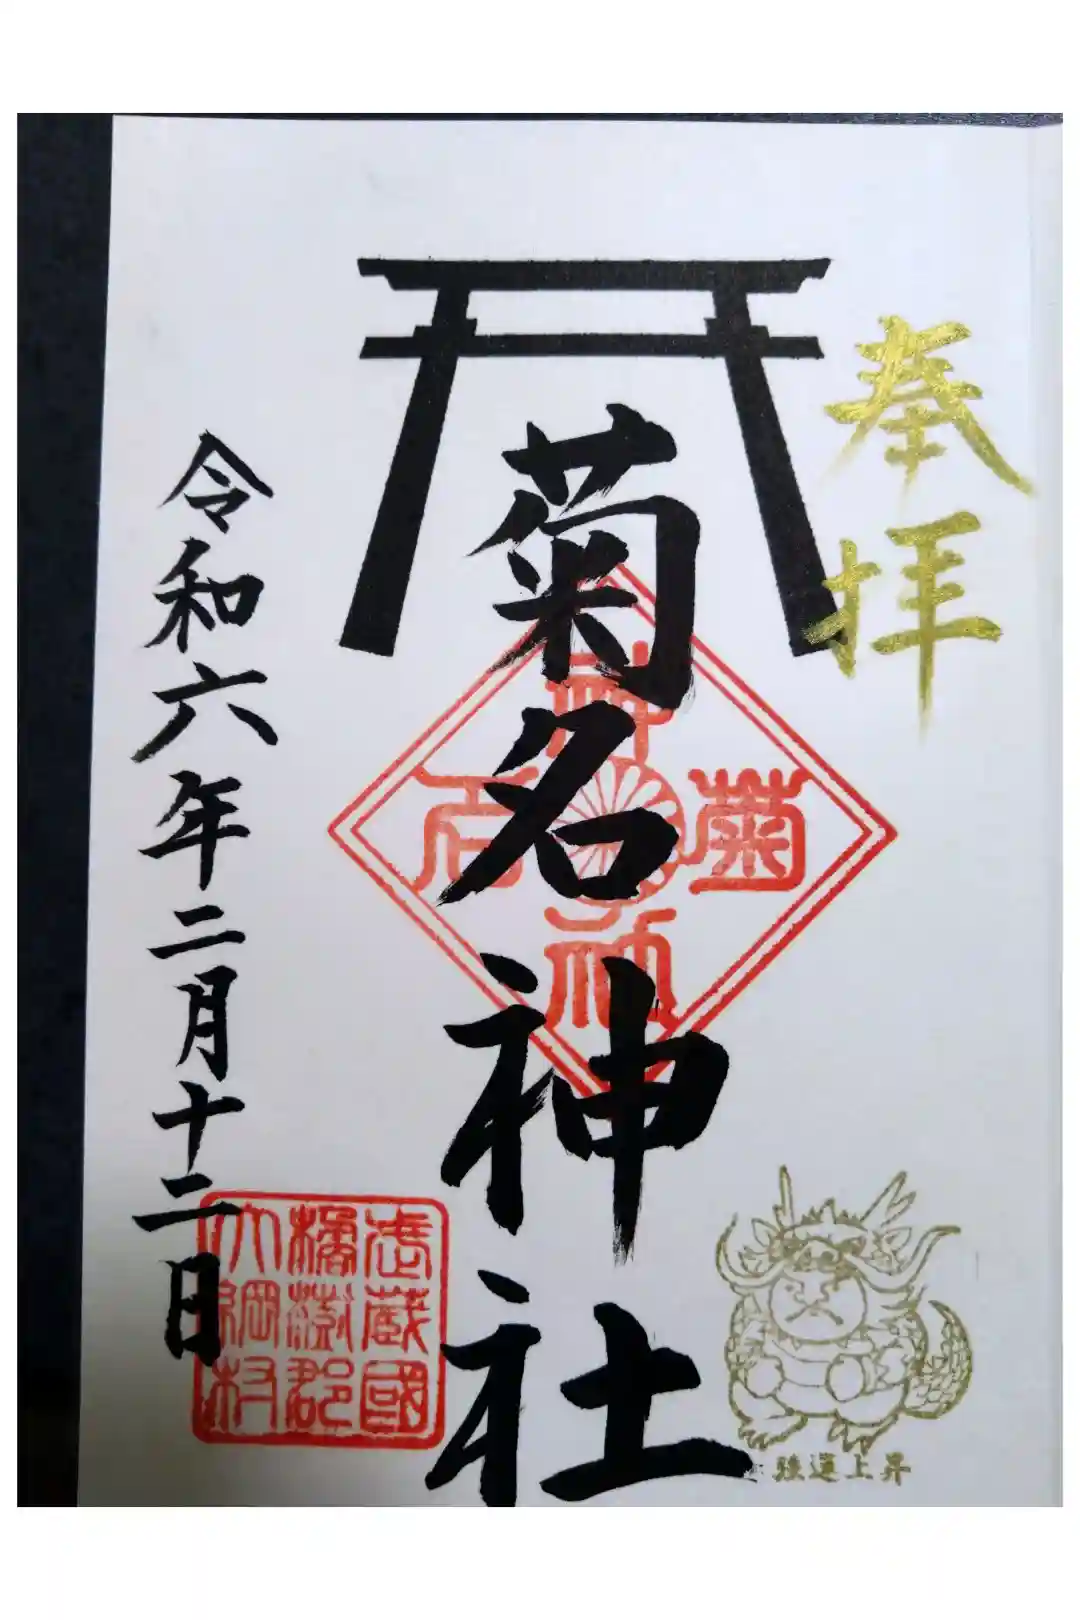 奉拝
菊名神社
菊名神社
令和六年二月十二日
武蔵國
橘樹郡
大綱村
強運上昇